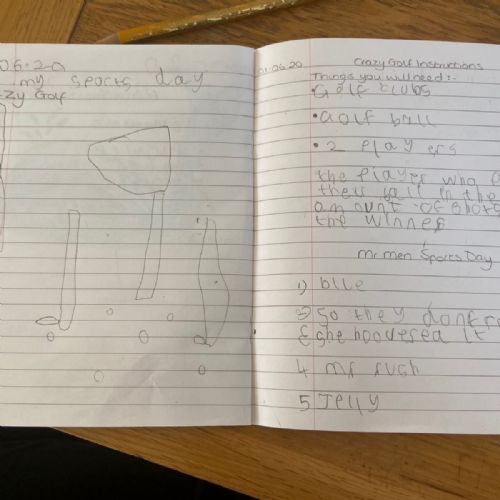 06.20
my sports day
zy Golf
01.06.20
Crazy Golf Instructions
Things you will need :-
• Golf clubs
• Golf ball
• 2 Players
the Player who
their ball in the
amount of shots
the winner
Mr Men Sports Day
1) blue
3) So they don't
& she hoovered it
4 mr rush
5 Jelly